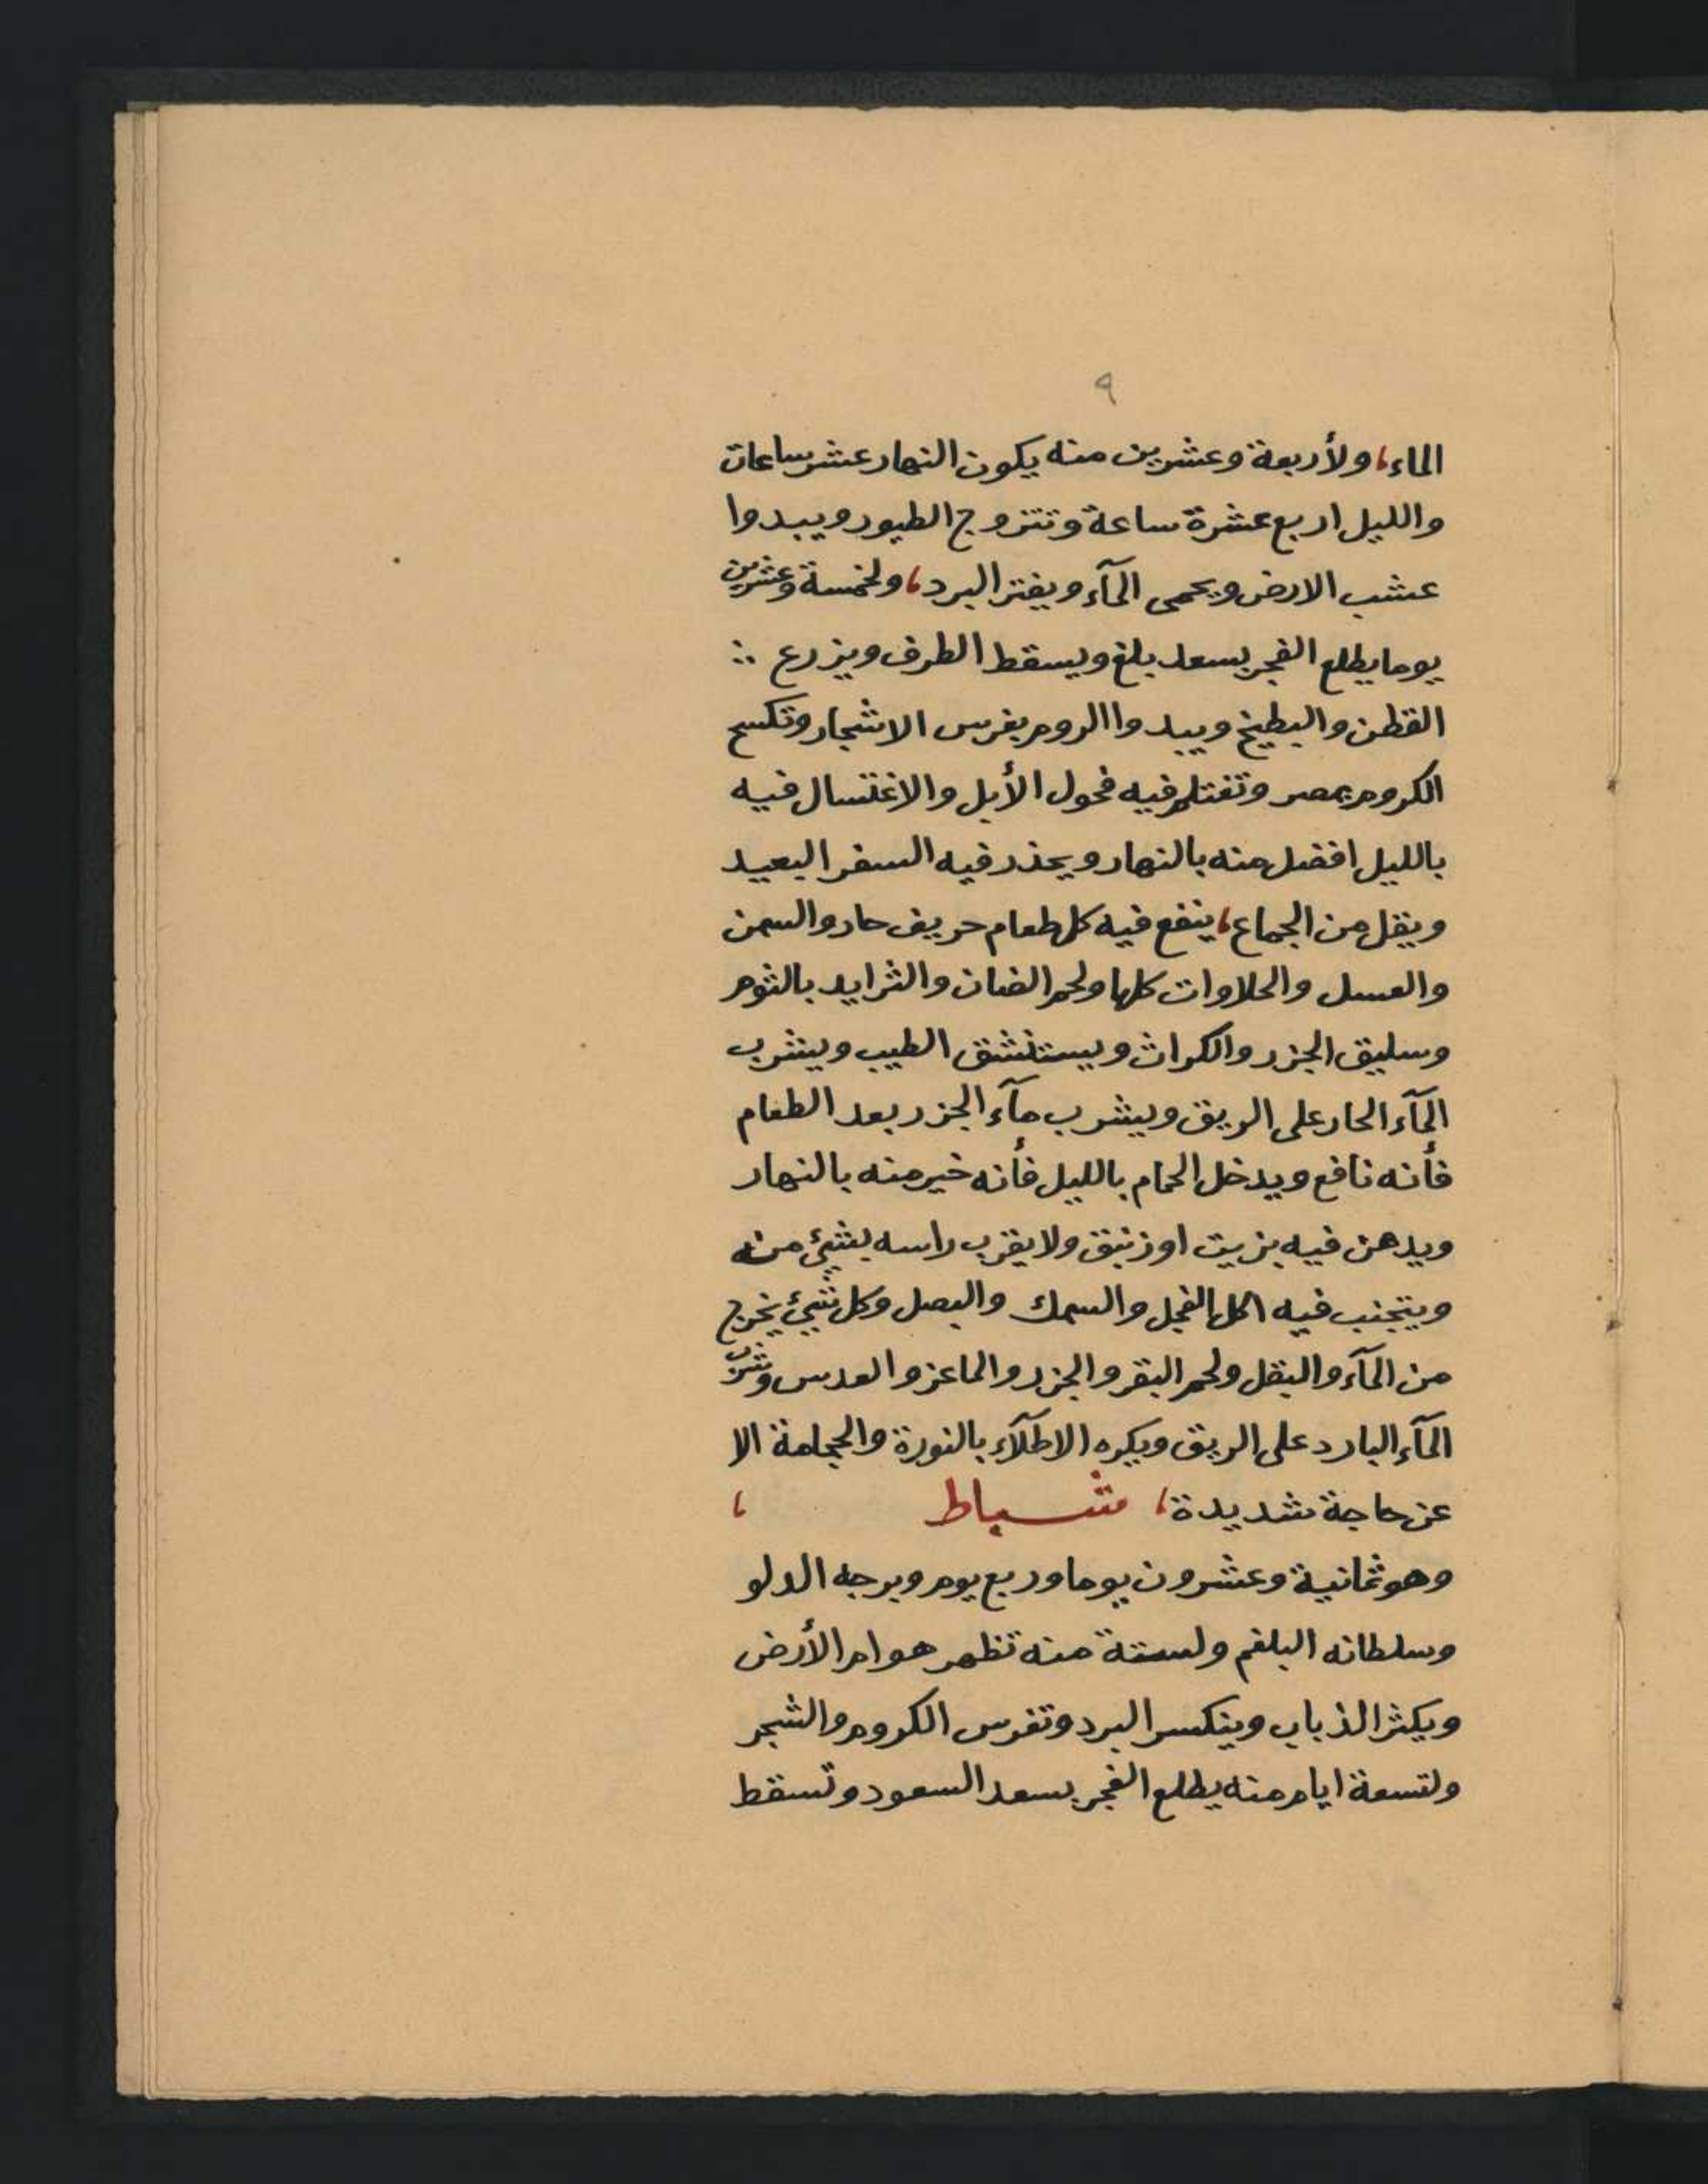 ٩
الماء، ولأربعة وعشرين منه يكون النهار عشر ساعات
والليل اربع عشرة ساعة وتتزوج الطيور ويبدوا
عشب الارض ويحمى المآء ويفتر البرد، ولخمسة وعشرين
يوما يطلع الفجر بسعد بلغ ويسقط الطرف ويزرع ∴
القطن والبطيخ ويبدوا الروم بغرس الاشجار وتكسح
الكروم بمصر وتغتلم فيه فحول الأبل والاغتسال فيه
بالليل افضل منه بالنهار ويحذر فيه السفر البعيد
ويقل من الجماع، ينفع فيه كل طعام حريف حار والسمن
والعسل والحلاوات كلها ولحم الضان والثرايد بالثوم
وسليق الجزر والكراث ويستنشق الطيب ويشرب
المآء الحار على الريق ويشرب مآء الجزر بعد الطعام
فأنه نافع ويدخل الحمام بالليل فأنه خير منه بالنهار
ويدهن فيه بزيت او زنبق ولا يقرب راسه بشيئ منه
ويتجنب فيه اكل الفجل والسمك والبصل وكل شيئ يخرج
من المآء والبقل ولحم البقر والجزر والماعز والعدس وشرب
المآء البارد على الريق ويكره الاطلآء بالنورة والحجامة الا
عن حاجة شديدة، شباط ،
وهو ثمانية وعشرون يوما وربع يوم وبرجه الدلو
وسلطانه البلغم ولستة منه تظهر هوام الأرض
ويكثر الذباب وينكسر البرد وتغرس الكروم والشجر
ولتسعة ايام منه يطلع الفجر بسعد السعود وتسقط